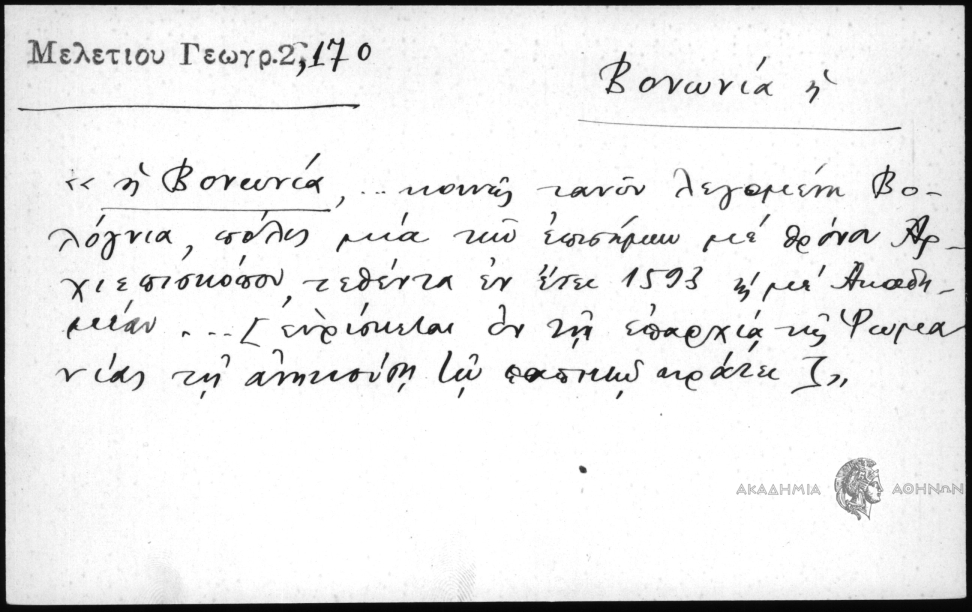 Μελετίου Γεωγρ.2,170
Βονωνία ἡ
«ἡ Βονωνία, ... κοινῶς τανῦν λεγομένη Βο-
λόγνια, πόλις μία τῶν ἐπισήμων μέ θρόνον Ἀρ-
χιεπισκόπου τεθέντα ἐν ἔτει 1593 καὶ μέ Ἀκαδη-
μίαν. ... [εὑρίσκεται ἐν τῇ ἐπαρχίᾳ τῆς Ῥωμα
νίας τῇ ἀνηκούσῃ τῷ παπικῷ κράτει]»
ΑΚΑΔΗΜΙΑ ΑΘΗΝΩΝ